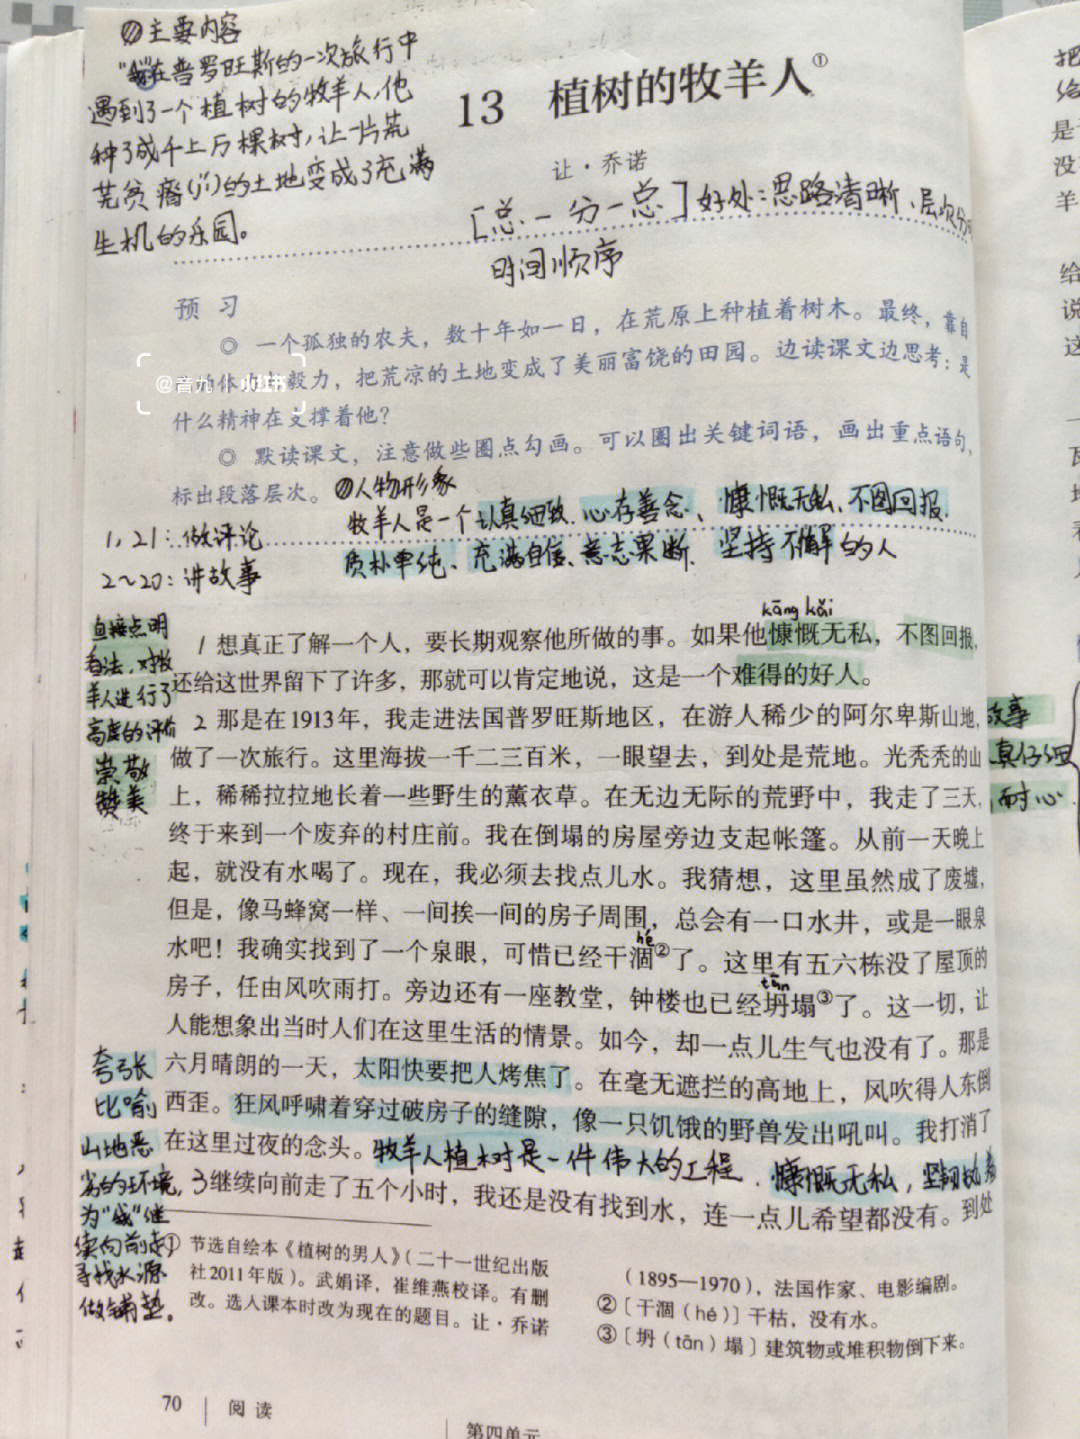 ①主要内容
"我"在普罗旺斯的一次旅行中
遇到了一个植树的牧羊人,他
种了成千上万棵树,让一片荒
芜贫瘠(jí)的土地变成了充满
生机的乐园。
13 植树的牧羊人①
让·乔诺
[总一分一总]好处:思路清晰、层次分
时间顺序
预 习
◎ 一个孤独的农夫，数十年如一日，在荒原上种植着树木。最终，靠自
毅力，把荒凉的土地变成了美丽富饶的田园。边读课文边思考：是
@音九
什么精神在支撑着他?
◎ 默读课文，注意做些圈点勾画。可以圈出关键词语，画出重点语句，
标出段落层次。
②人物形象
牧羊人是一个认真细致、心存善念、慷慨无私、不图回报、
质朴单纯、充满自信、意志果断、坚持不懈的人
1,21:做评论
2~20:讲故事
直接点明
看法,对牧
羊人进行了
高度的评价
崇敬
赞美
kāng kǎi
1 想真正了解一个人，要长期观察他所做的事。如果他慷慨无私，不图回报，
还给这世界留下了许多，那就可以肯定地说，这是一个难得的好人。
2 那是在1913年，我走进法国普罗旺斯地区，在游人稀少的阿尔卑斯山地，
做了一次旅行。这里海拔一千二三百米，一眼望去，到处是荒地。光秃秃的山
上，稀稀拉拉地长着一些野生的薰衣草。在无边无际的荒野中，我走了三天，
终于来到一个废弃的村庄前。我在倒塌的房屋旁边支起帐篷。从前一天晚上
起，就没有水喝了。现在，我必须去找点儿水。我猜想，这里虽然成了废墟，
但是，像马蜂窝一样、一间挨一间的房子周围，总会有一口水井，或是一眼泉
hé
水吧！我确实找到了一个泉眼，可惜已经干涸②了。这里有五六栋没了屋顶的
tān
房子，任由风吹雨打。旁边还有一座教堂，钟楼也已经坍塌③了。这一切，让
人能想象出当时人们在这里生活的情景。如今，却一点儿生气也没有了。那是
六月晴朗的一天，太阳快要把人烤焦了。在毫无遮拦的高地上，风吹得人东倒
西歪。狂风呼啸着穿过破房子的缝隙，像一只饥饿的野兽发出吼叫。我打消了
在这里过夜的念头。
牧羊人植树是一件伟大的工程、慷慨无私,坚韧执着
3 继续向前走了五个小时，我还是没有找到水，连一点儿希望都没有。到处
夸张
比喻
山地恶
劣的环境,
为"我"继
续向前走
寻找水源
做铺垫。
①节选自绘本《植树的男人》（二十一世纪出版
社2011年版）。武娟译，崔维燕校译。有删
改。选入课本时改为现在的题目。让·乔诺
（1895—1970），法国作家、电影编剧。
②〔干涸（hé）〕干枯，没有水。
③〔坍（tān）塌〕建筑物或堆积物倒下来。
70 阅读
第四单元
故事
真仔细
耐心
把
给
是
没
羊
给
说
这